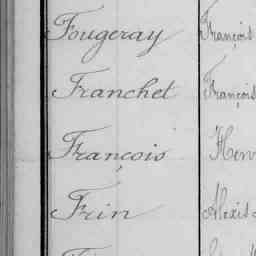 Fougeray François
Franchet François
François Henri
Frin Alexis